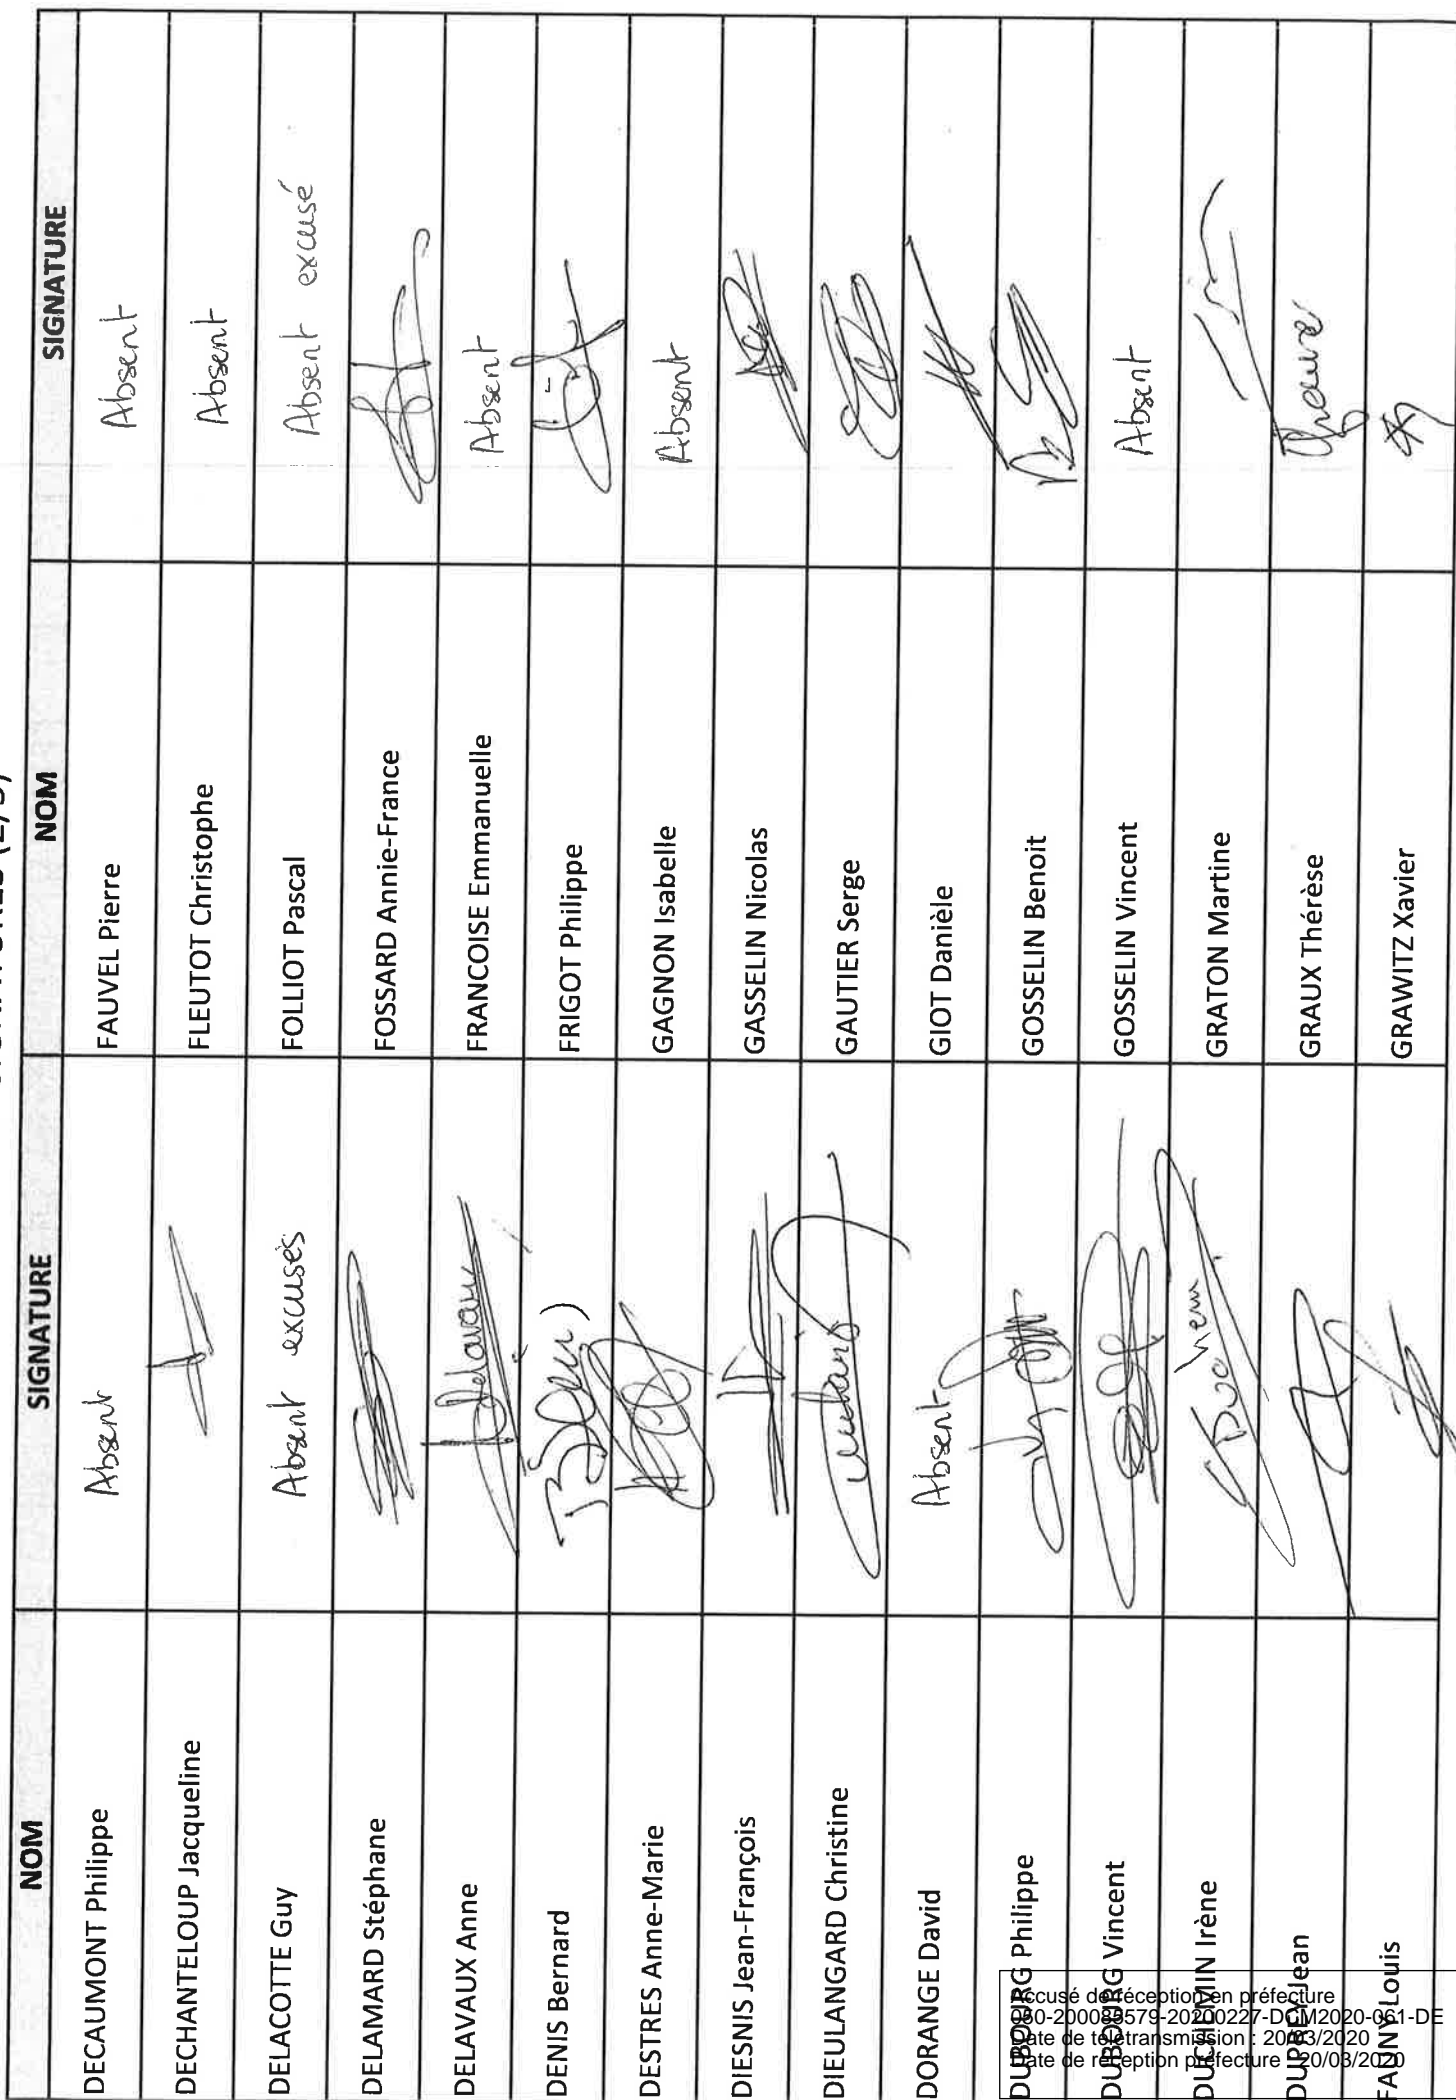 NOM SIGNATURE NOM SIGNATURE
DECAUMONT Philippe Absent FAUVEL Pierre Absent
DECHANTELOUP Jacqueline FLEUTOT Christophe Absent
DELACOTTE Guy Absent excusés FOLLIOT Pascal Absent excusé
DELAMARD Stéphane FOSSARD Annie-France
DELAVAUX Anne Delavaux FRANCOISE Emmanuelle Absent
DENIS Bernard FRIGOT Philippe
DESTRES Anne-Marie GAGNON Isabelle Absent
DIESNIS Jean-François GASSELIN Nicolas
DIEULANGARD Christine GAUTIER Serge
DORANGE David Absent GIOT Danièle
DUBOURG Philippe GOSSELIN Benoit
DUBOURG Vincent GOSSELIN Vincent Absent
DUCHEMIN Irène GRATON Martine
DUPREY Jean GRAUX Thérèse
FANNY Louis GRAWITZ Xavier
Accusé de réception en préfecture
050-200085579-20200227-DCM2020-061-DE
Date de télétransmission : 20/03/2020
Date de réception préfecture : 20/03/2020